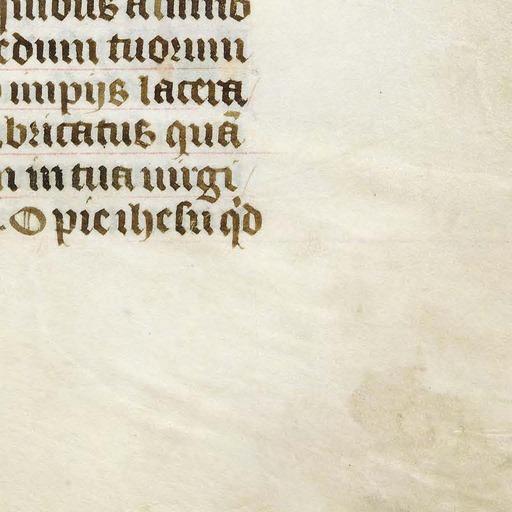 edum tuorum
impijs lacera
bricatus quā
in tua uirgi
O pie ihesu qd